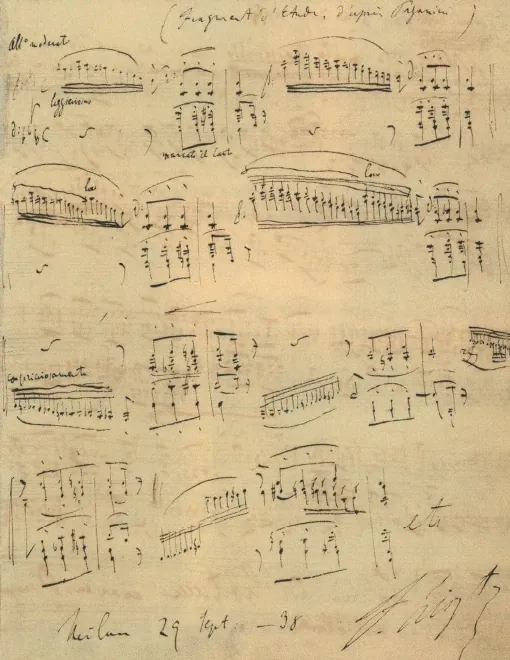 (Fragment d'Etude, d'après Paganini)
All° moderato
leggierissimo
marcato il canto
8va
capricciosamente
etc
Milan 29 Sept - 38
F. Liszt